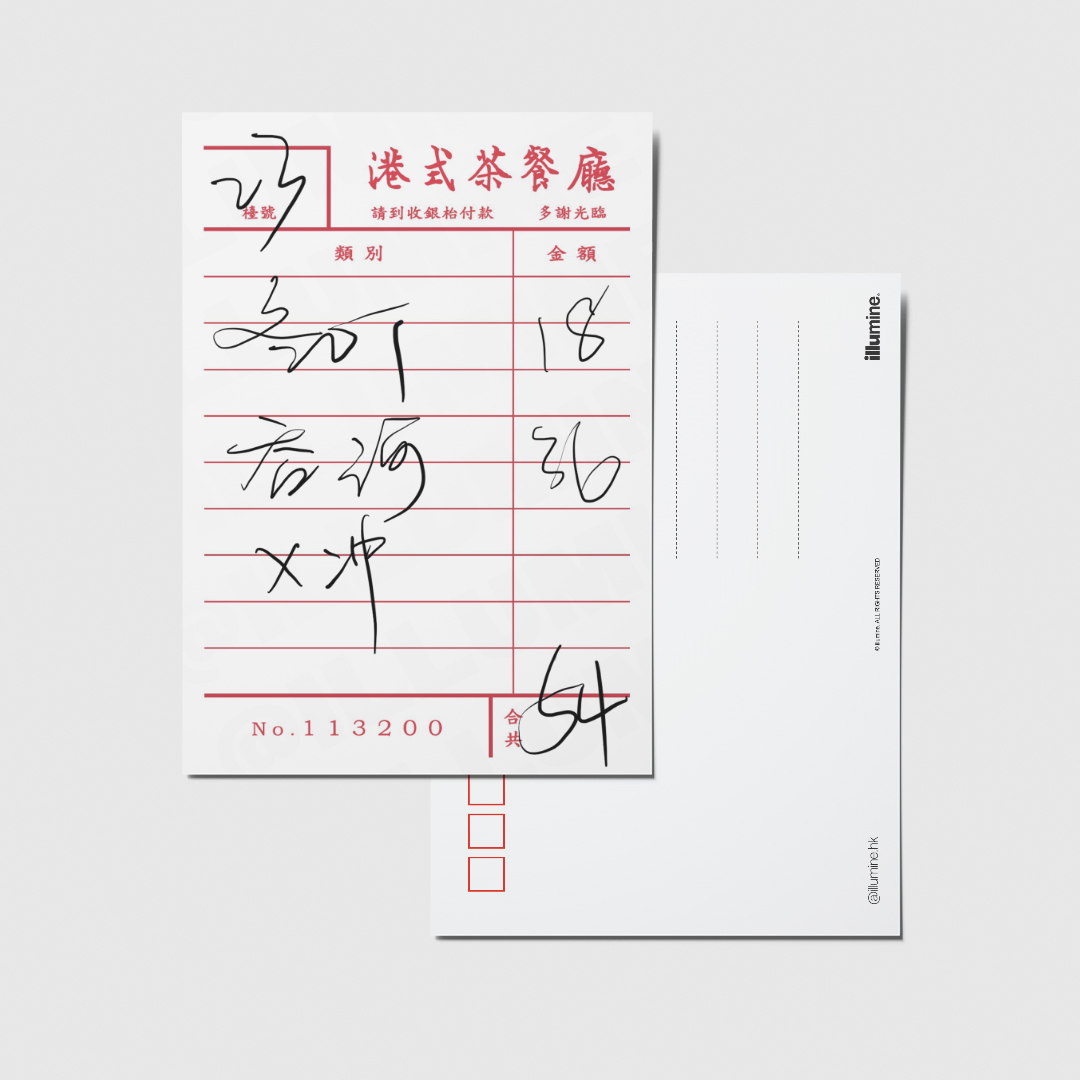 23
檯號
港式茶餐廳
請到收銀枱付款 多謝光臨
類別 金額
18
河 36
冲
No.113200
合共 54
illumine.
©illumine. ALL RIGHTS RESERVED
@illumine.hk